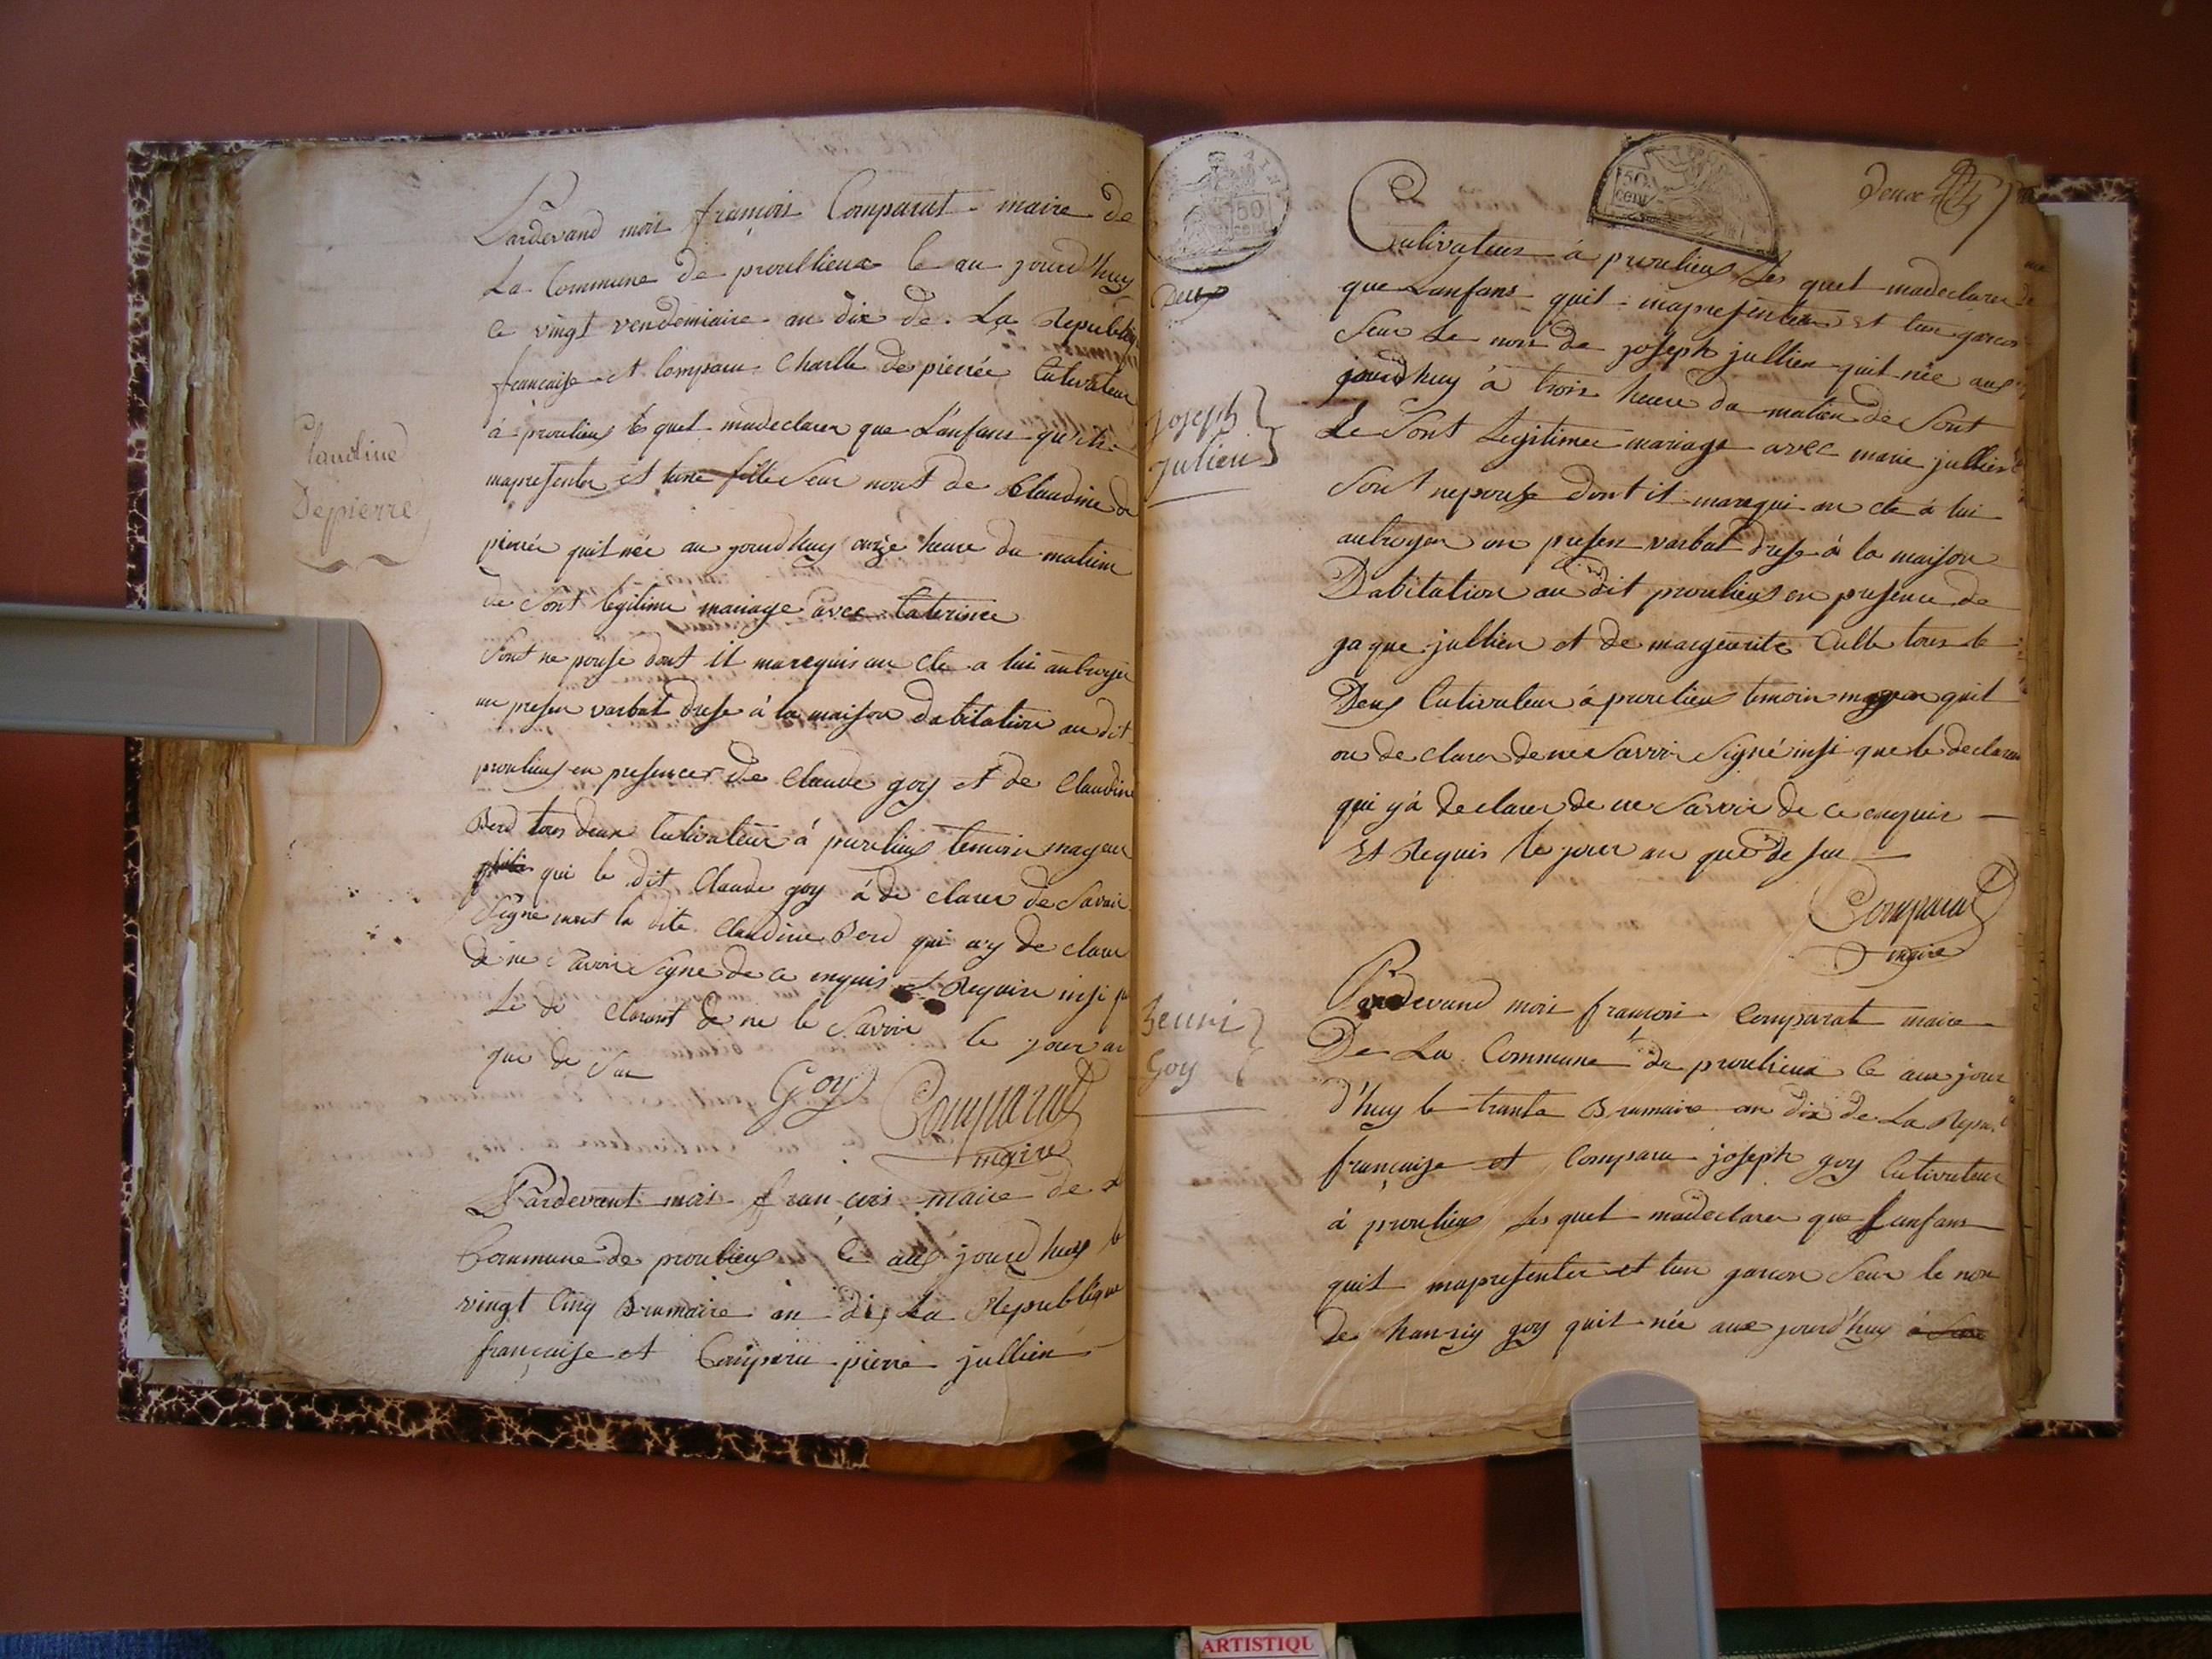 Claudine
Depierre
Pardevand moi françois Comparat maire de
La Commune de proullieux le au jourd'huy
le vingt vendemiaire an dix de La Republiq
française et Comparu Charlle de pierrée Cultivateur
à proulieu les quel madeclarer que L'anfans qu'il
mapresenter et tune fille seur nont de Claudine de
pierrée quit née au jourd huy onze heure du matien
de sont legitime mariage avec Caterinee
sont ne pouse dont it marequis an cte a lui autroyer
un presen varbat drese à la maison dabitation au dit
proulieu en presences de Claude goy et de Claudine
Berd tous deux Cultivateur à proulieu temoin mageur
qui le dit Claude goy à de clarer de savoir
signe mest la dite Claudine Berd qui ay de clarer
de ne savoir signe de ce enquis et Require insi que
Le de clarant de ne le savoir le jour an
que de sur
Goy
Comparat
maire
Pardevant moi françois maire de
Commune de proulieu le auj jourd huy le
vingt Cinq Brumaire an dix La Republique
française et Comparu pierre jullien
deux
50 cent
Deux
Joseph
Julien
Cultivateur à proulieu les quel madeclarer
que L'anfans quil mapresenter et tun garcon
seur le non de joseph jullien quit née auj
jourd huy à trois heure du matien de sont
Le sont Legitimee mariage avec marie jullien
sont nepouse dont it marequi an cte à lui
autroyer un presen varbat drese à la maison
Dabitation au dit proulieu en presence de
jaque jullien et de margeurite Culle tous le
Deux Cultivateur à proulieu temoin mageur quil
on de clarer de ne savoir signé insi que le declarant
qui y à declarer de ne savoir de ce enquis
Et Requis le jour an que de sur
Comparat
maire
Henri
Goy
Pardevand moi françois Comparat maire
De La Commune de proulieux le aux jour
d'huy le trante Brumaire an dix de La Repu.
française et Comparu joseph goy Cultivateur
à proulieu les quel madeclarer que Lanfans
quit mapresenter et tun garcon seur le non
de hanriy goy quit née aux jourd'huy
ARTISTIQU